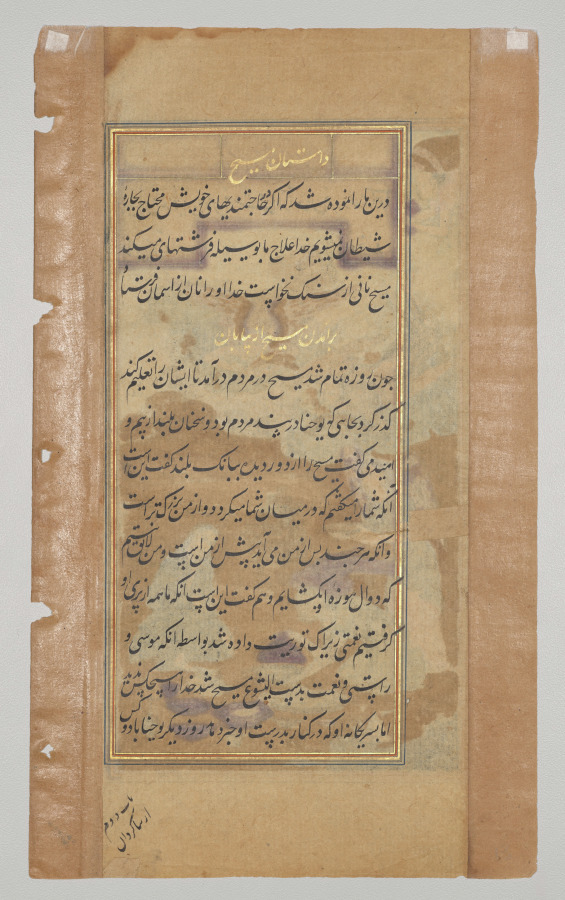 داستان مسیح
درین بار انموده شد که اکر در حاجتمندیهای خویش محتاج بچاره
شیطان نمیشویم خدا علاج ما بوسیله فرشتهای میکند
مسیح نانی از سنک نخواست خدا او را نان از اسمان فرستاد
برآمدن مسیح از بیابان
چون روزه تمام شد مسیح در مردم درآمد تا ایشان را تعلیم کند
کذر کرد بجایی که یوحنا در پند مردم بود و سخنان بلند از بیم و
امید می کفت مسیح را از دور دید ببانک بلند کفت این است
آنکه شما را میکفتم که در میان شما میکردد و از من بزرک تر است
و انکه هر چند پس از من می آید پیش از من است و من لایق نیستم
که دوال موزه او بکشایم و هم کفت این است انکه ما همه از پری او
کرفتیم نعمتی زیراک توریت داده شد بواسطه انکه موسی و
راستی و نعمت بدست ایشوع مسیح شد خدا را هیچکس ندید
اما پسر یکانه او که در کنار پدر است او خبر داد روز دیکر یوحنا با دو کس
باب دوم
از شاکردان